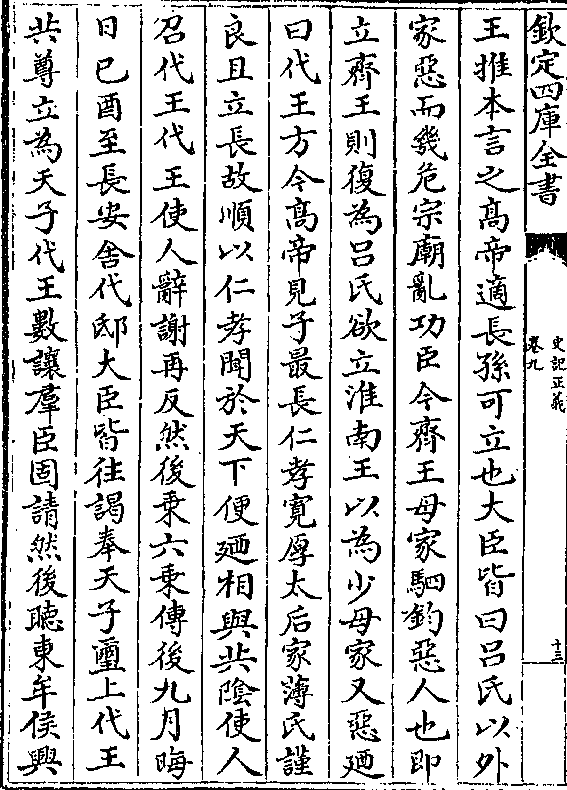 欽定四庫全書
史記正義
卷九
十三
王推本言之髙帝適長孫可立也大臣皆曰吕氏以外
家惡而幾危宗廟亂功臣今齊王母家駟鈞惡人也即
立齊王則復為吕氏欲立淮南王以為少母家又惡廼
曰代王方今髙帝見子最長仁孝寛厚太后家薄氏謹
良且立長故順以仁孝聞於天下便廼相與共陰使人
召代王代王使人辭謝再反然後乘六乘傳後九月晦
日已酉至長安舍代邸大臣皆往謁奉天子璽上代王
共尊立為天子代王數讓羣臣固請然後聽東牟侯興